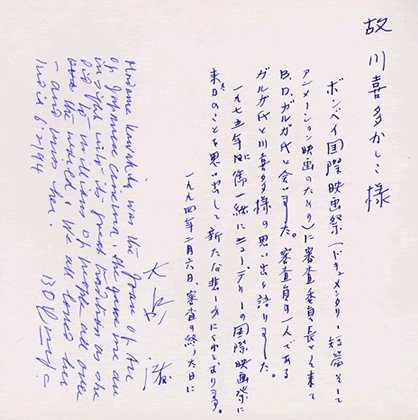 故 川喜多かしこ様
ボンベイ国際映画祭(ドキュメンタリー、短篇そして
アニメーション映画のための)に審査委員長として来て
B.D.ガルガ氏と会いました。審査員の一人である
ガルガ氏と川喜多様の思い出を語りました。
一九七五年に御一緒にニューデリーの国際映画祭に
来た日のことを思い出して新たな悲しみにくれております。
一九九四年二月六日、審査の終った日に
大島 渚
Madame Kawakita was the Joan of Arc
of Japanese cinema. She gave me an
insight into its great traditions as she
did to millions of people all over
the world. We all loved her
- and miss her.
B D Garga
India 6/2/94